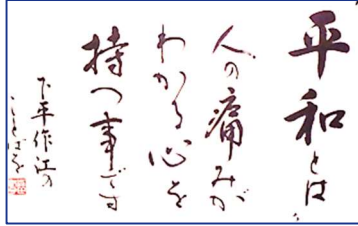 平和とは
人の痛みが
わかる心を
持つ事です
下平作江の
ことばを